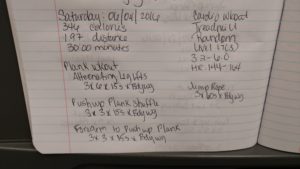 Saturday: 06/04/2016
346 calories
1.97 distance
30:00 minutes
Plank wkout
Alternating leg lifts
3 x 6 x 15s x Bdywg
Pushup Plank Shuffle
3 x 3 x 15s x Bdywg
Forearm to Pushup Plank
3 x 3 x 35s x Bdywg
Cardio wkout
Treadmill
Random
Lvl 1
3.2 - 6.0
HR: 144-164
Jump Rope
3 x 60s x Bdywg